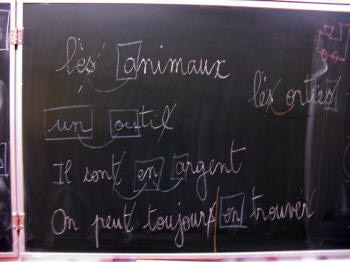 lés animaux
lés orties
un outil
Il sont en argent
On peut toujours en trouver